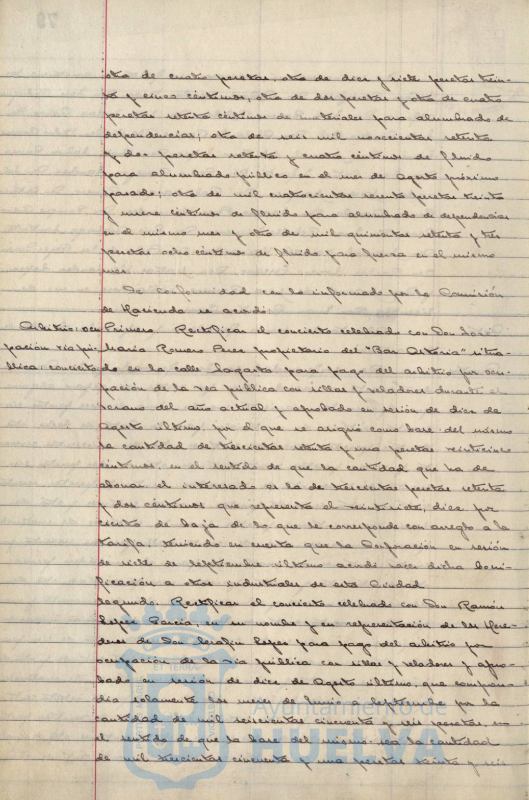 otra de cuatro pesetas, otra de diez y siete pesetas trein-
ta y cinco céntimos, otra de dos pesetas y otra de cuatro
pesetas setenta céntimos de materiales para alumbrado de
dependencias; otra de seis mil novecientas setenta
y dos pesetas setenta y cuatro céntimos de flúido
para alumbrado público en el mes de Agosto próximo
pasado; otra de mil cuatrocientas sesenta pesetas treinta
y nueve céntimos de flúido para alumbrado de dependencias
en el mismo mes y otra de mil quinientas setenta y tres
pesetas ocho céntimos de flúido para fuerza en el mismo
mes.
De conformidad con lo informado por la Comisión
de Hacienda se acordó:
Arbitrio: ocu-
pación via pú-
blica: concierto
Primero. Rectificar el concierto celebrado con Don José
María Romero Perez propietario del "Bar Astoria" situa-
do en la calle Sagasta para pago del arbitrio por ocu-
pación de la vía pública con sillas y veladores durante el
verano del año actual y aprobado en sesión de diez de
Agosto último, por el que se asignó como base del mismo
la cantidad de trescientas setenta y una pesetas veinticinco
céntimos, en el sentido de que la cantidad que ha de
abonar el interesado es la de trescientas pesetas setenta
y dos céntimos que representa el veintisiete, diez por
ciento de baja de lo que se corresponde con arreglo a la
tarifa, teniendo en cuenta que la Corporación en sesión
de siete de septiembre último acordó hacer dicha boni-
ficación a otros industriales de esta Ciudad
Segundo. Rectificar el concierto celebrado con Don Ramón
Lopez García, en su nombre y en representación de los Here-
deros de Don Serafín Lopez para pago del arbitrio por
ocupación de la vía pública con sillas y veladores y apro-
bado en sesión de diez de Agosto último, que compren-
día solamente los meses de Junio a Septiembre por la
cantidad de mil seiscientas cincuenta y seis pesetas, en
el sentido de que la base del mismo sea la cantidad
de mil trescientas cincuenta y una pesetas treinta y seis
Ayuntamiento de
HUELVA